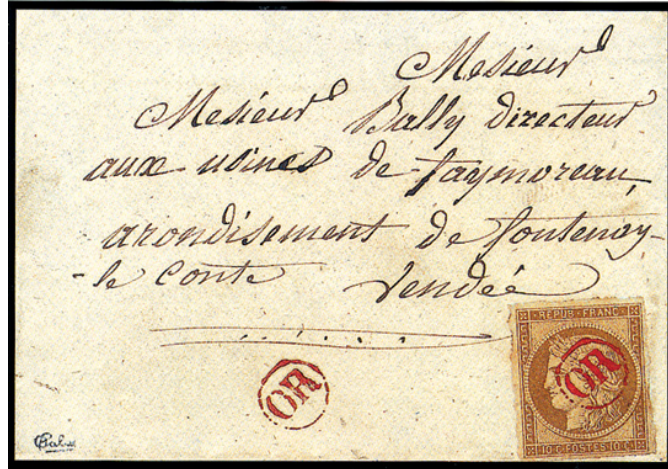 Mesieur
Mesieur Bally directeur
aux usines de faymoreau
arondisement de fontenay-
-le Conte Vendée
REPUB·FRANC·
OR
OR
10·C·POSTES·10·C·